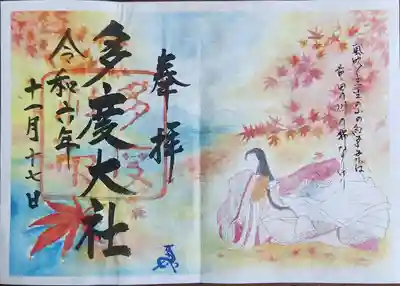 嵐吹く三室の山のもみぢ葉は
竜田の川の錦なりけり
奉拝
多度大社
令和六年
十一月十七日